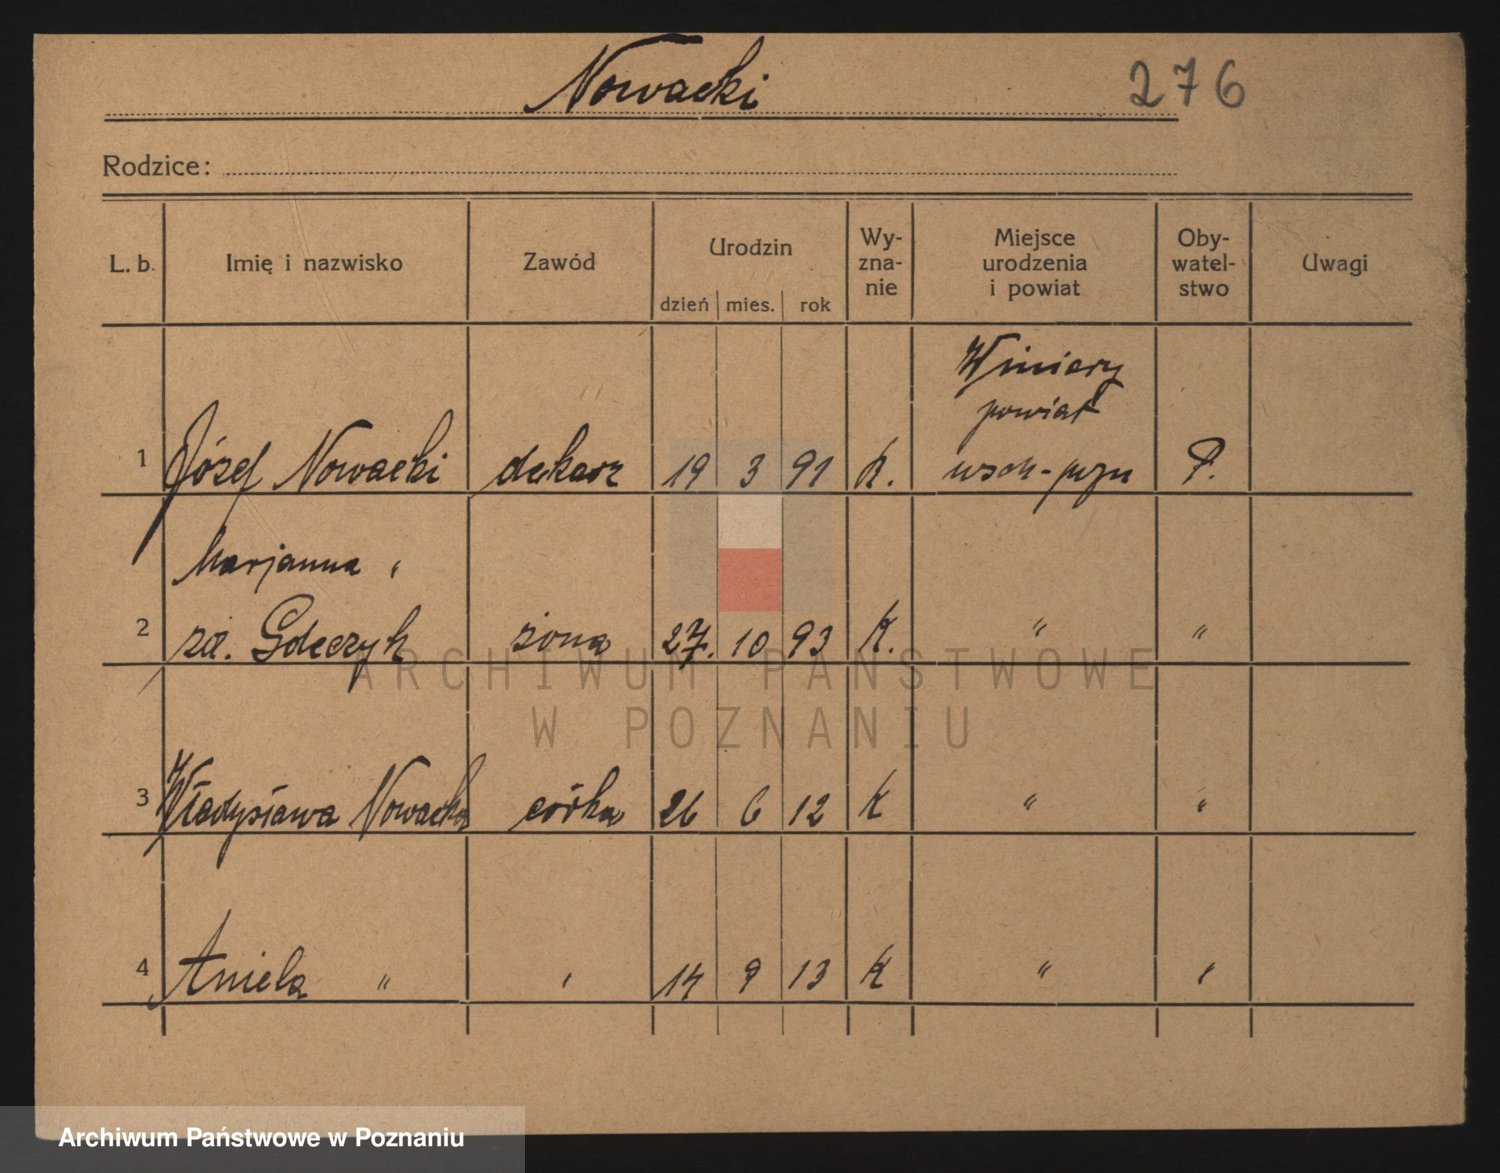 Nowacki 276
Rodzice:
L. b. Imię i nazwisko Zawód Urodzin Wy-zna-nie Miejsce urodzenia i powiat Oby-watel-stwo Uwagi
dzień mies. rok
Winiary
powiat
1 Józef Nowacki dekarz 19 3 91 K. wsch-pozn P.
Marjanna "
2 zd. żona 27. 10 93 K. " "
3 Władysława Nowacka córka 26 6 12 K " "
4 Aniela " " 14 9 13 K " "
ARCHIWUM PAŃSTWOWE
W POZNANIU
Archiwum Państwowe w Poznaniu